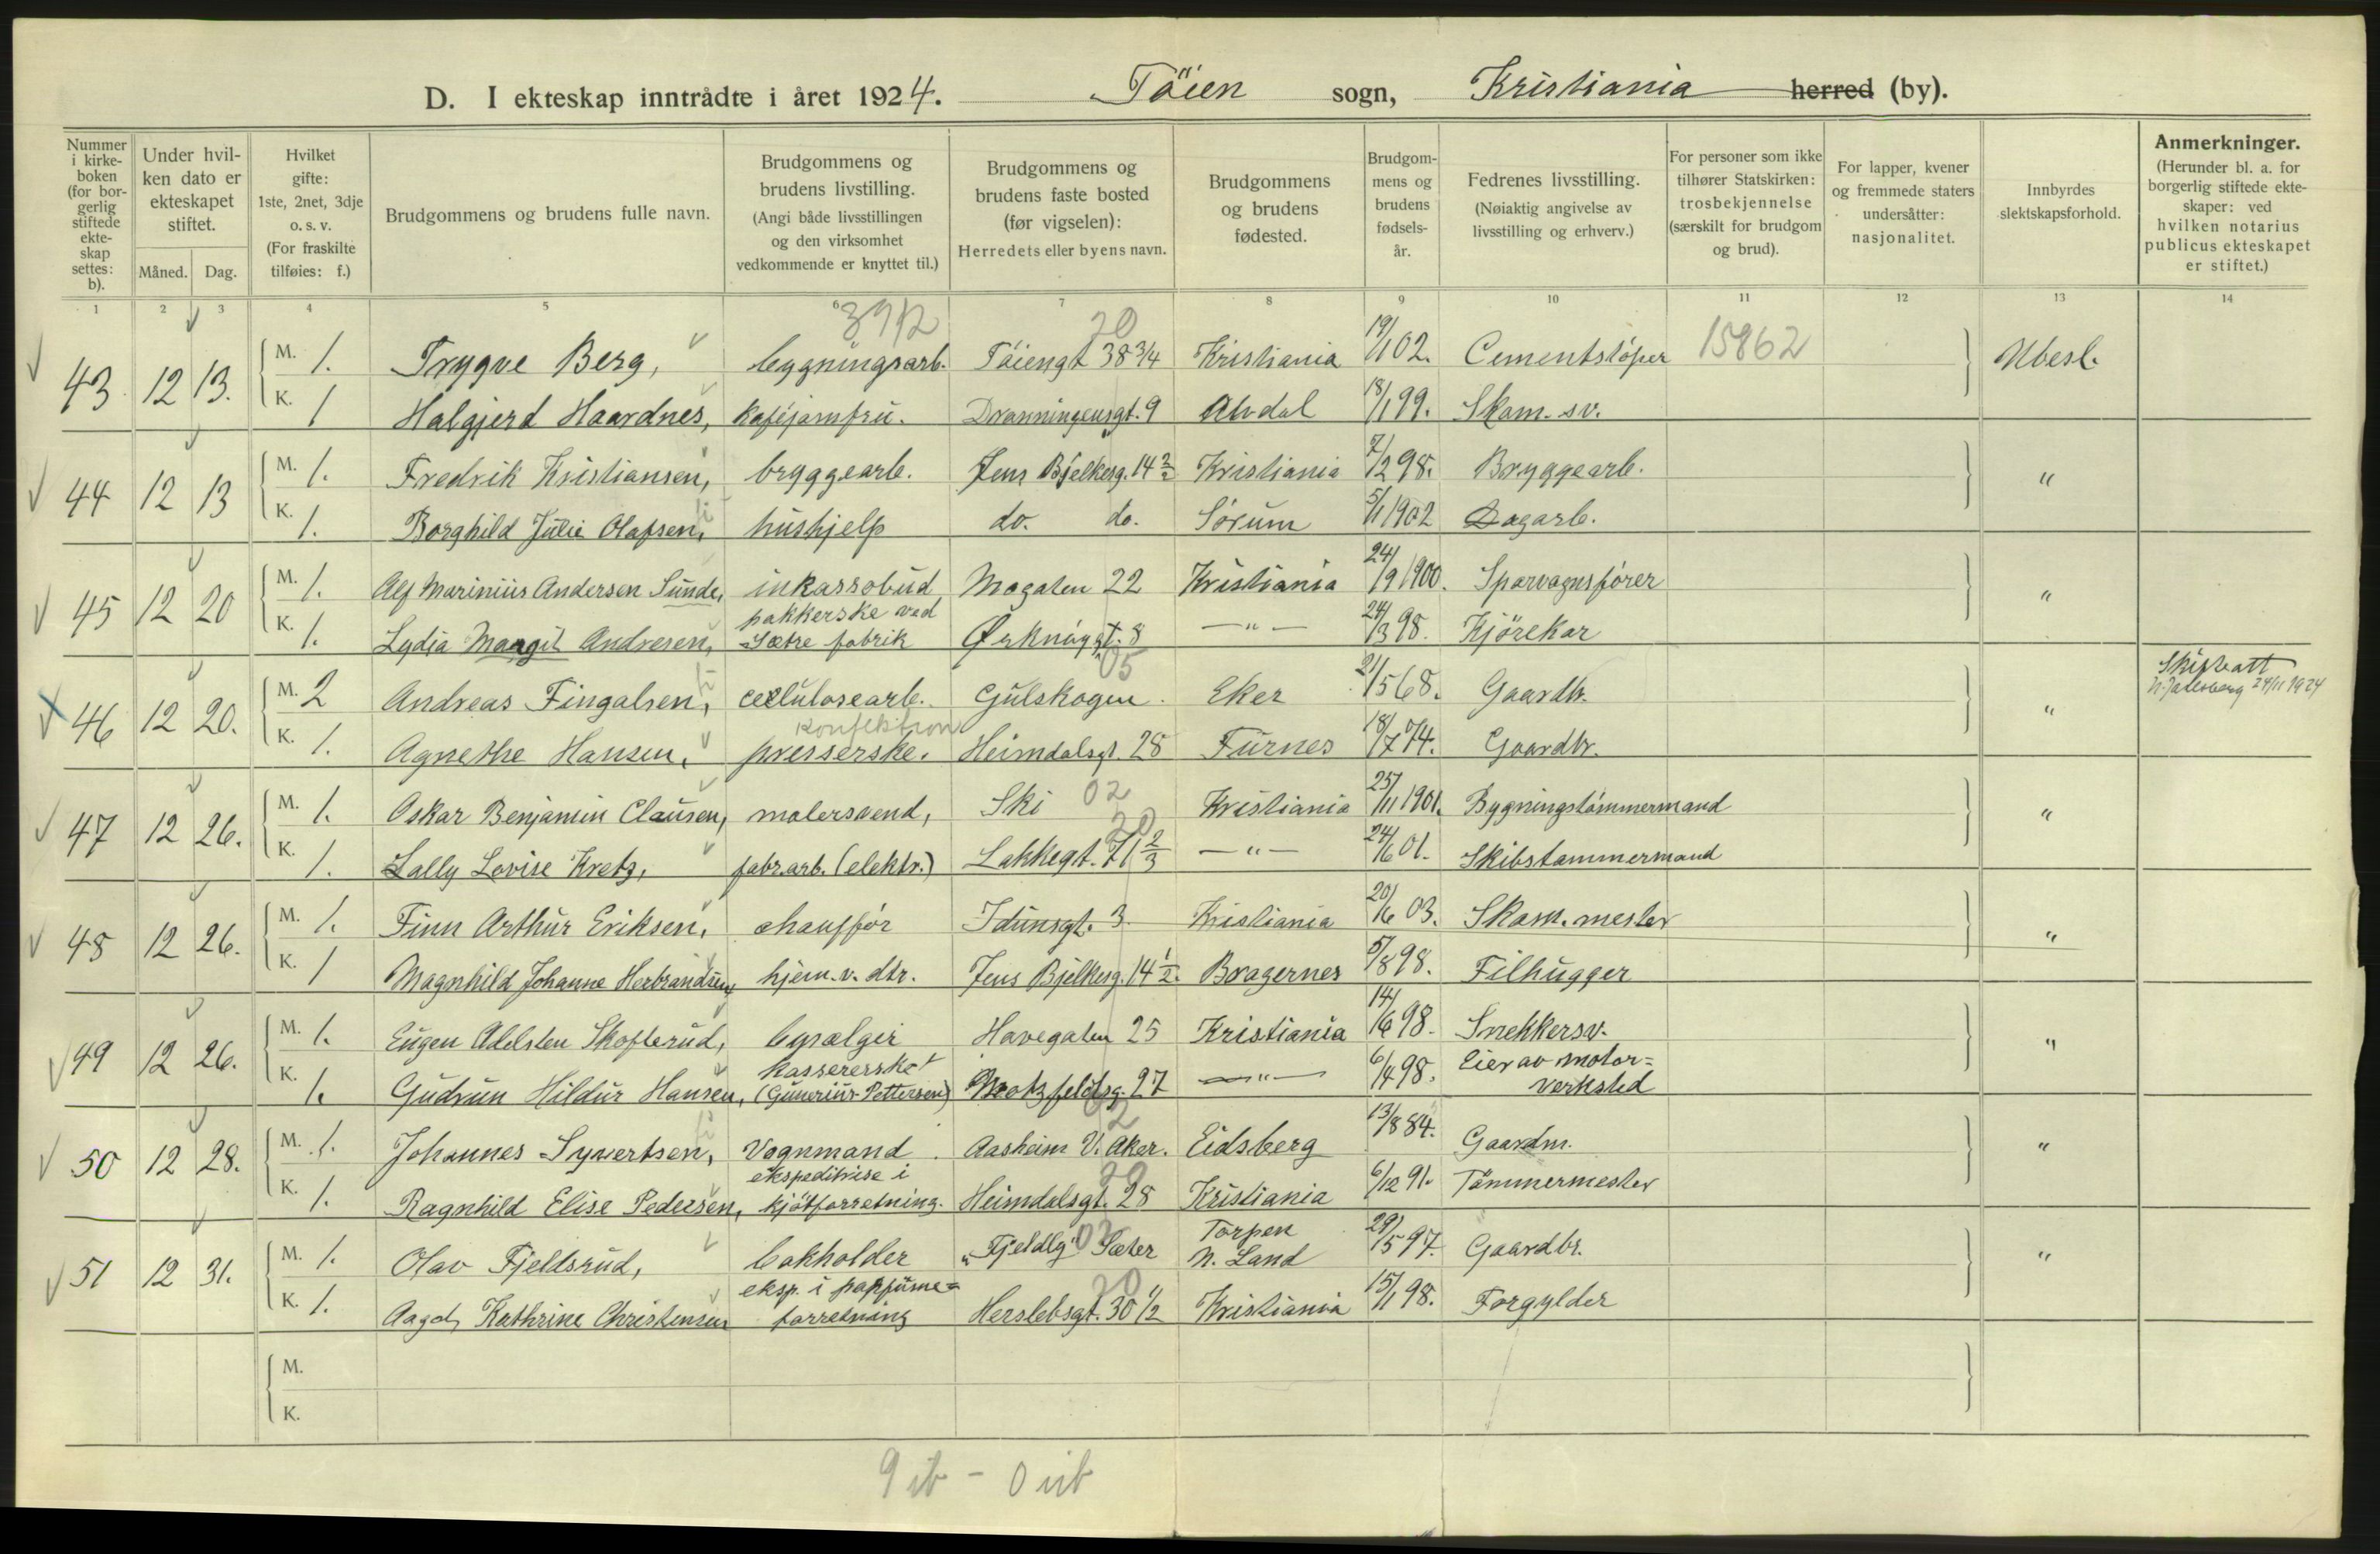 D. I ekteskap inntrådte i året 1924. Töien sogn, Kristiania herred (by).
Nummer i kirkeboken (for borgerlig stiftede ekteskap settes: b).
Under hvilken dato er ekteskapet stiftet.
Måned. Dag.
Hvilket gifte: 1ste, 2net, 3dje o. s. v. (For fraskilte tilføies: f.)
Brudgommens og brudens fulle navn.
Brudgommens og brudens livstilling. (Angi både livsstillingen og den virksomhet vedkommende er knyttet til.)
Brudgommens og brudens faste bosted (før vigselen): Herredets eller byens navn.
Brudgommens og brudens fødested.
Brudgommens og brudens fødselsår.
Fedrenes livsstilling. (Nøiaktig angivelse av livsstilling og erhverv.)
For personer som ikke tilhører Statskirken: trosbekjennelse (særskilt for brudgom og brud).
For lapper, kvener og fremmede staters undersåtter: nasjonalitet.
Innbyrdes slektskapsforhold.
Anmerkninger. (Herunder bl. a. for borgerlig stiftede ekteskaper: ved hvilken notarius publicus ekteskapet er stiftet.)
1 2 3 4 5 6 7 8 9 10 11 12 13 14
3912 20
43 12 13. M. 1. Trygve Berg, bygningsarb. Töiengt 38 3/4 Kristiania 19/1 02. Cementstöper 15862 Ubesl.
K. 1 Halgjerd Haardnes, kaféjomfru. Dronningensgt. 9 Alvdal 18/1 99. Skom. sv.
44 12 13 M. 1. Fredrik Kristiansen, bryggearb. Jens Bjelkesg. 14 2/2 Kristiania 7/12 98. Bryggearb. "
K. 1. Borghild Julie Olafsen, hushjelp do. do. Sörum 5/1 1902 Dagarb.
45 12 20 M. 1. Alf Marinius Andersen Sunde, inkassobud Mogaten 22 Kristiania 24/9 1900. Sporvognsförer "
K. 1. Lydia Margit Andresen, pakkerske ved Sætre fabrik Örknöygt. 8 - " - 24/3 98. Kjörekar
05
46 12 20. M. 2 Andreas Fingalsen, cellulosearb. Gulskogen. Eker 21/5 68. Gaardbr. " Skifteatt
24/11 1924
K. 1. Agnethe Hansen, konfektion presserske. Heimdalsgt. 28 Furnes 18/7 74. Gaardbr.
47 12 26. M. 1. Oskar Benjamin Clausen, malersvend, Ski 02 Kristiania 25/11 1901. Bygningstömmermand "
20
K. 1. Lally Lovise Kretz, fabr.arb. (elektr.) Lakkegt. 71 2/3 - " - 24/6 01. Skibstømmermand
48 12 26. M. 1. Finn Arthur Eriksen, chaufför Idunsgt. 3 Kristiania 20/6 03. Skom. mester "
K. 1 Magnhild Johanne Herbrandsen, hjem. v. dtr. Jens Bjelkesg. 14 1/2. Bragernes 5/8 98. Filhugger
49 12 26. M. 1. Eugen Adelsten Skofterud, bysælger Havegaten 25 Kristiania 14/6 98. Snekkersv. "
K. 1. Gudrun Hildur Hansen, kassererske (Gunerius Pettersen) Motzfeldtsg. 27 - " - 6/4 98. Eier av motor=verksted
02
50 12 28. M. 1. Johannes Syvertsen, Vognmand Aasheim V. Aker. Eidsberg 13/8 84. Gaardm. "
20
K. 1. Ragnhild Elise Pedersen, ekspeditrise i kjötforretning. Heimdalsgt. 28 Kristiania 6/12 91. Tömmermester
51 12 31. M. 1. Olav Fjeldsrud, bokholder "Fjeldlg" 02 Sæter Torpen N. Land 29/5 97. Gaardbr. "
20
K. 1. Aagot Kathrine Christensen eksp. i parfüme=forretning Herslebsgt. 30 1/2 Kristiania 15/1 98. Forgylder
M.
K.
9 ib - 0 uib